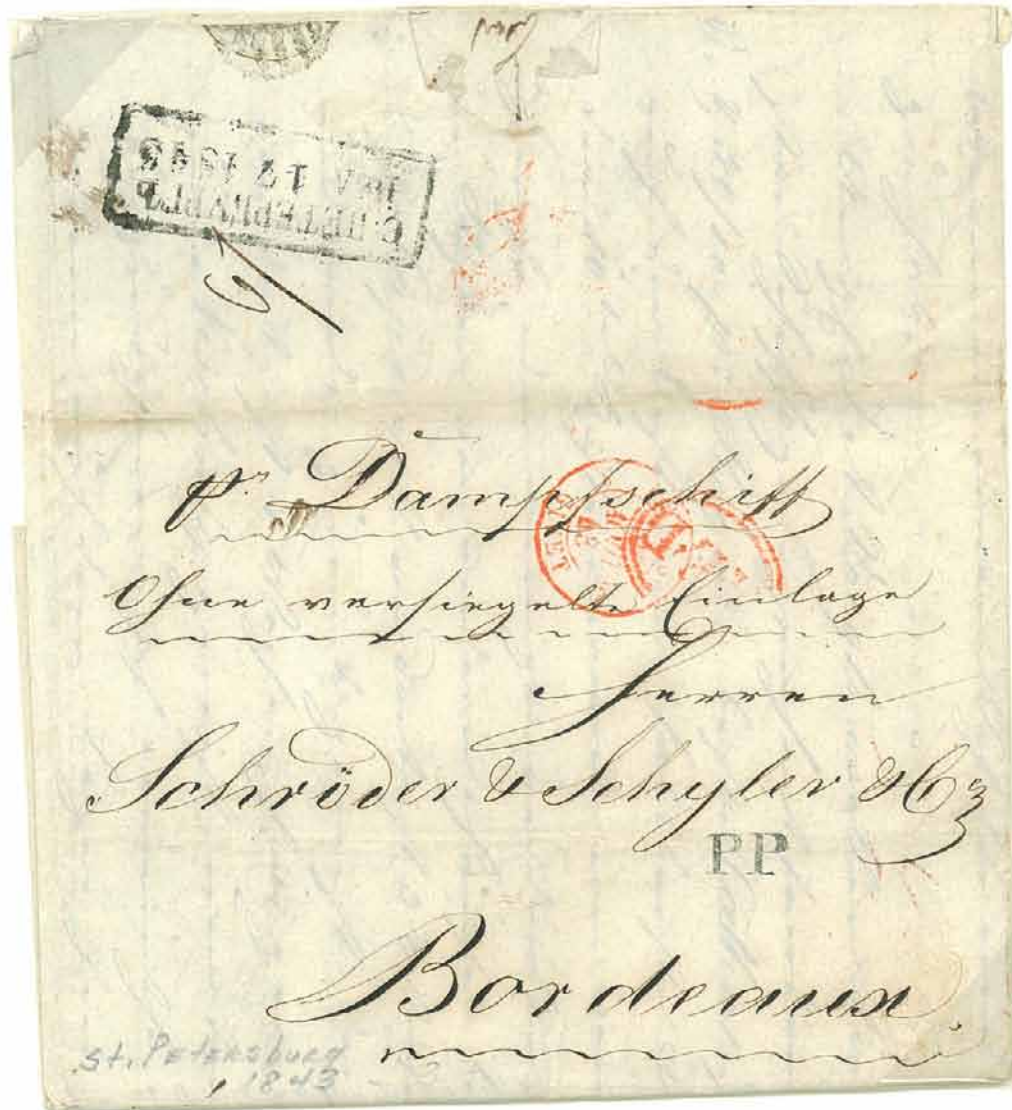 С.ПЕТЕРБУРГЪ
17 1843
pr Dampfschiff
Ohne versiegelte Einlage
Herren
Schröder & Schyler & Co
PP
Bordeaux.
St. Petersburg
1843